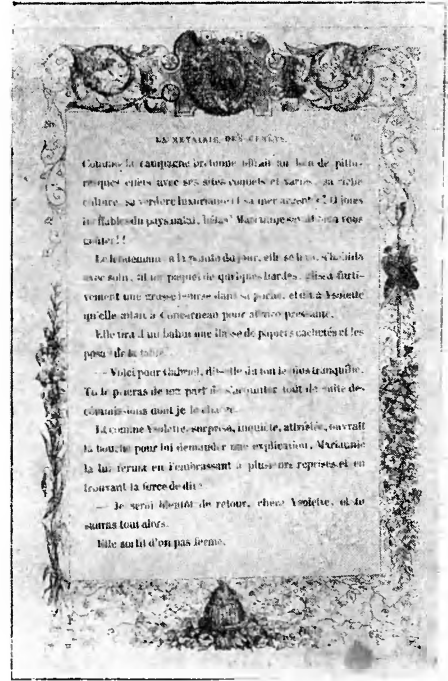 LA METAIRIE DES GENÊTS.
Comme la campagne bretonne offrait au loin de pitto-
resques effets avec ses sites coquets et variés, sa riche
culture, sa verdure luxuriante et sa mer argentée! O joies
ineffables du pays natal, hélas! Mariannie savait bien vous
goûter!!
Le lendemain, à la pointe du jour, elle se leva, s'habilla
avec soin, fit un paquet de quelques hardes, glissa furti-
vement une grosse bourse dans sa poche, et dit à Ysolette
qu'elle allait à Concarneau pour affaire pressante.
Elle tira d'un bahut une liasse de papiers cachetés et les
posa sur la table.
— Voici pour Gabriel, dit-elle du ton le plus tranquille.
Tu le prieras de ma part de s'acquitter tout de suite des
commissions dont je le charge.
Et comme Ysolette, surprise, inquiète, attristée, ouvrait
la bouche pour lui demander une explication, Mariannie
la lui ferma en l'embrassant à plusieurs reprises et en
trouvant la force de dire:
— Je serai bientôt de retour, chère Ysolette, et tu
sauras tout alors.
Elle sortit d'un pas ferme.